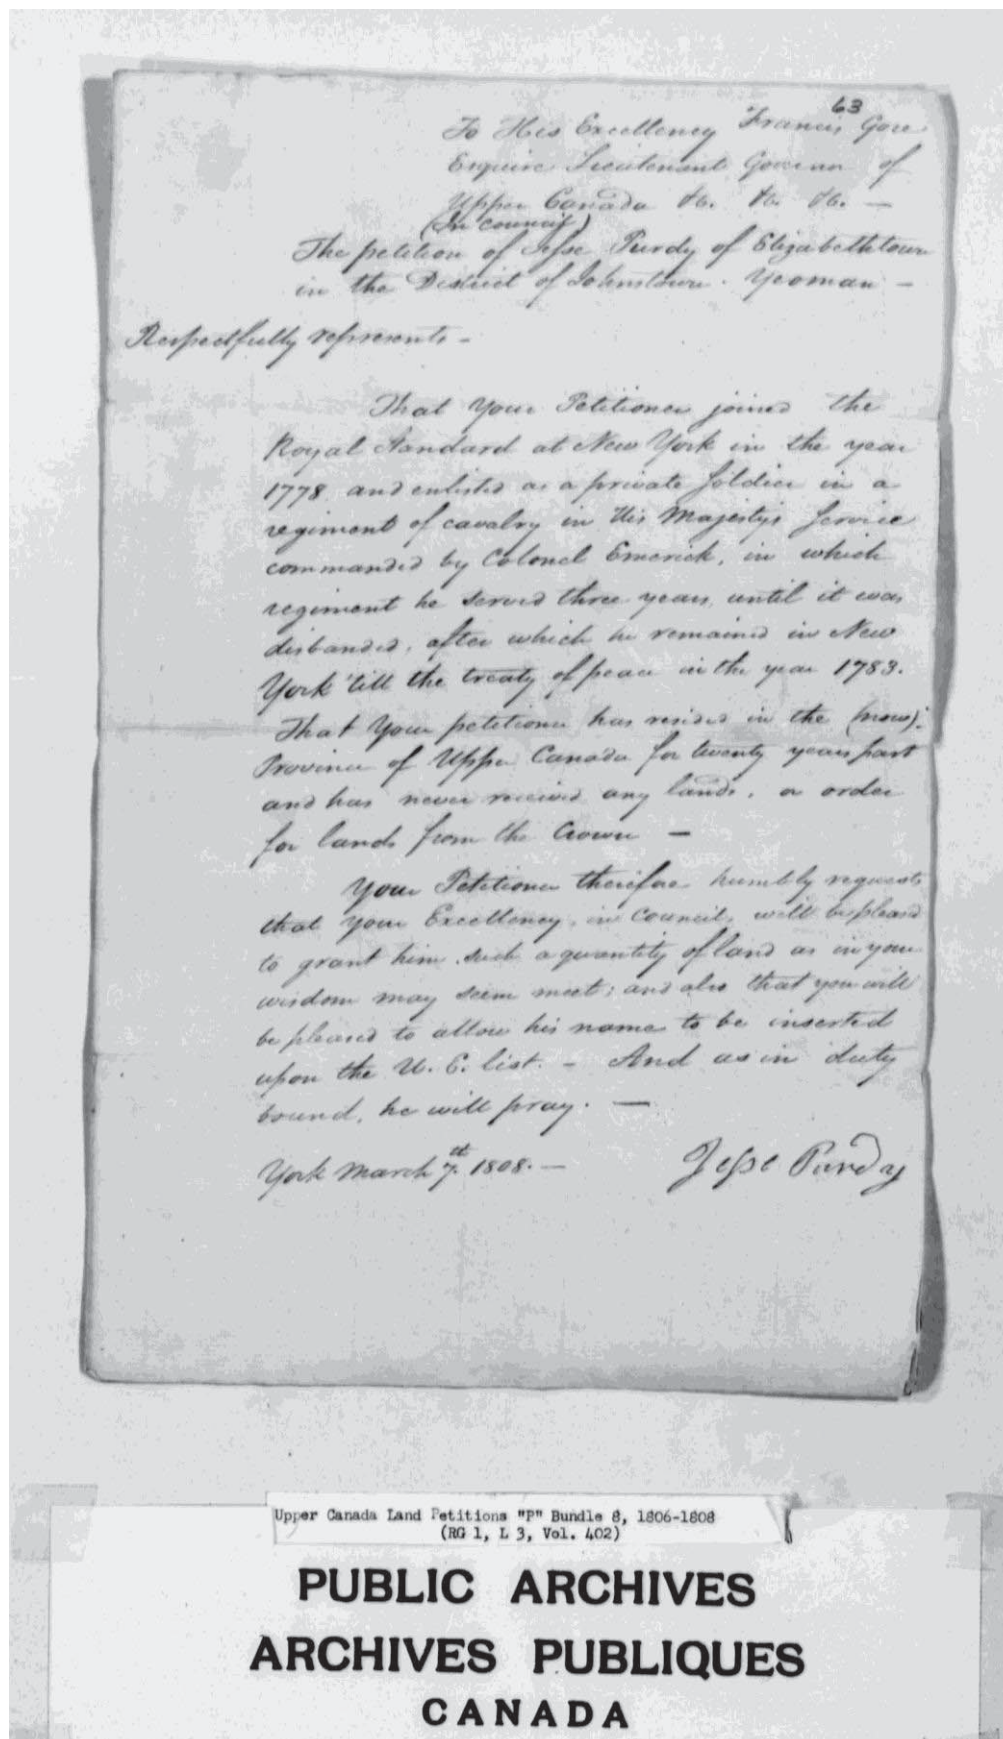 63
To His Excellency Francis Gore
Esquire Lieutenant Governor of
Upper Canada &c. &c. &c. —
(In council)
The petition of Jesse Purdy of Elizabethtown
in the District of Johnstown. Yeoman —
Respectfully represents —
That Your Petitioner joined the
Royal Standard at New York in the year
1778 and enlisted as a private soldier in a
regiment of cavalry in His Majestys Service
commanded by Colonel Emerick, in which
regiment he served three years, until it was
disbanded, after which he remained in New
York 'till the treaty of peace in the year 1783.
That Your petitioner has resided in the (now)
Province of Upper Canada for twenty years past
and has never received any lands, or order
for lands from the Crown —
Your Petitioner therefore humbly requests
that your Excellency, in Council, will be pleased
to grant him such a quantity of land as in your
wisdom may seem meet; and also that you will
be pleased to allow his name to be inserted
upon the U. E. list. — And as in duty
bound, he will pray. —
York March 7th 1808. —
Jesse Purdy
Upper Canada Land Petitions "P" Bundle 8, 1806-1808
(RG 1, L 3, Vol. 402)
PUBLIC ARCHIVES
ARCHIVES PUBLIQUES
CANADA